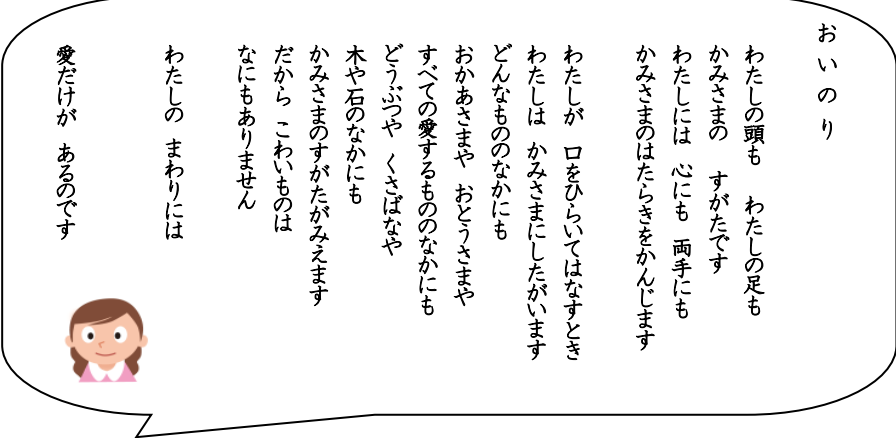 おいのり
わたしの頭も　わたしの足も
かみさまの　すがたです
わたしには　心にも　両手にも
かみさまのはたらきをかんじます
わたしが　口をひらいてはなすとき
わたしは　かみさまにしたがいます
どんなもののなかにも
おかあさまや　おとうさまや
すべての愛するもののなかにも
どうぶつや　くさばなや
木や石のなかにも
かみさまのすがたがみえます
だから　こわいものは
なにもありません
わたしの　まわりには
愛だけが　あるのです